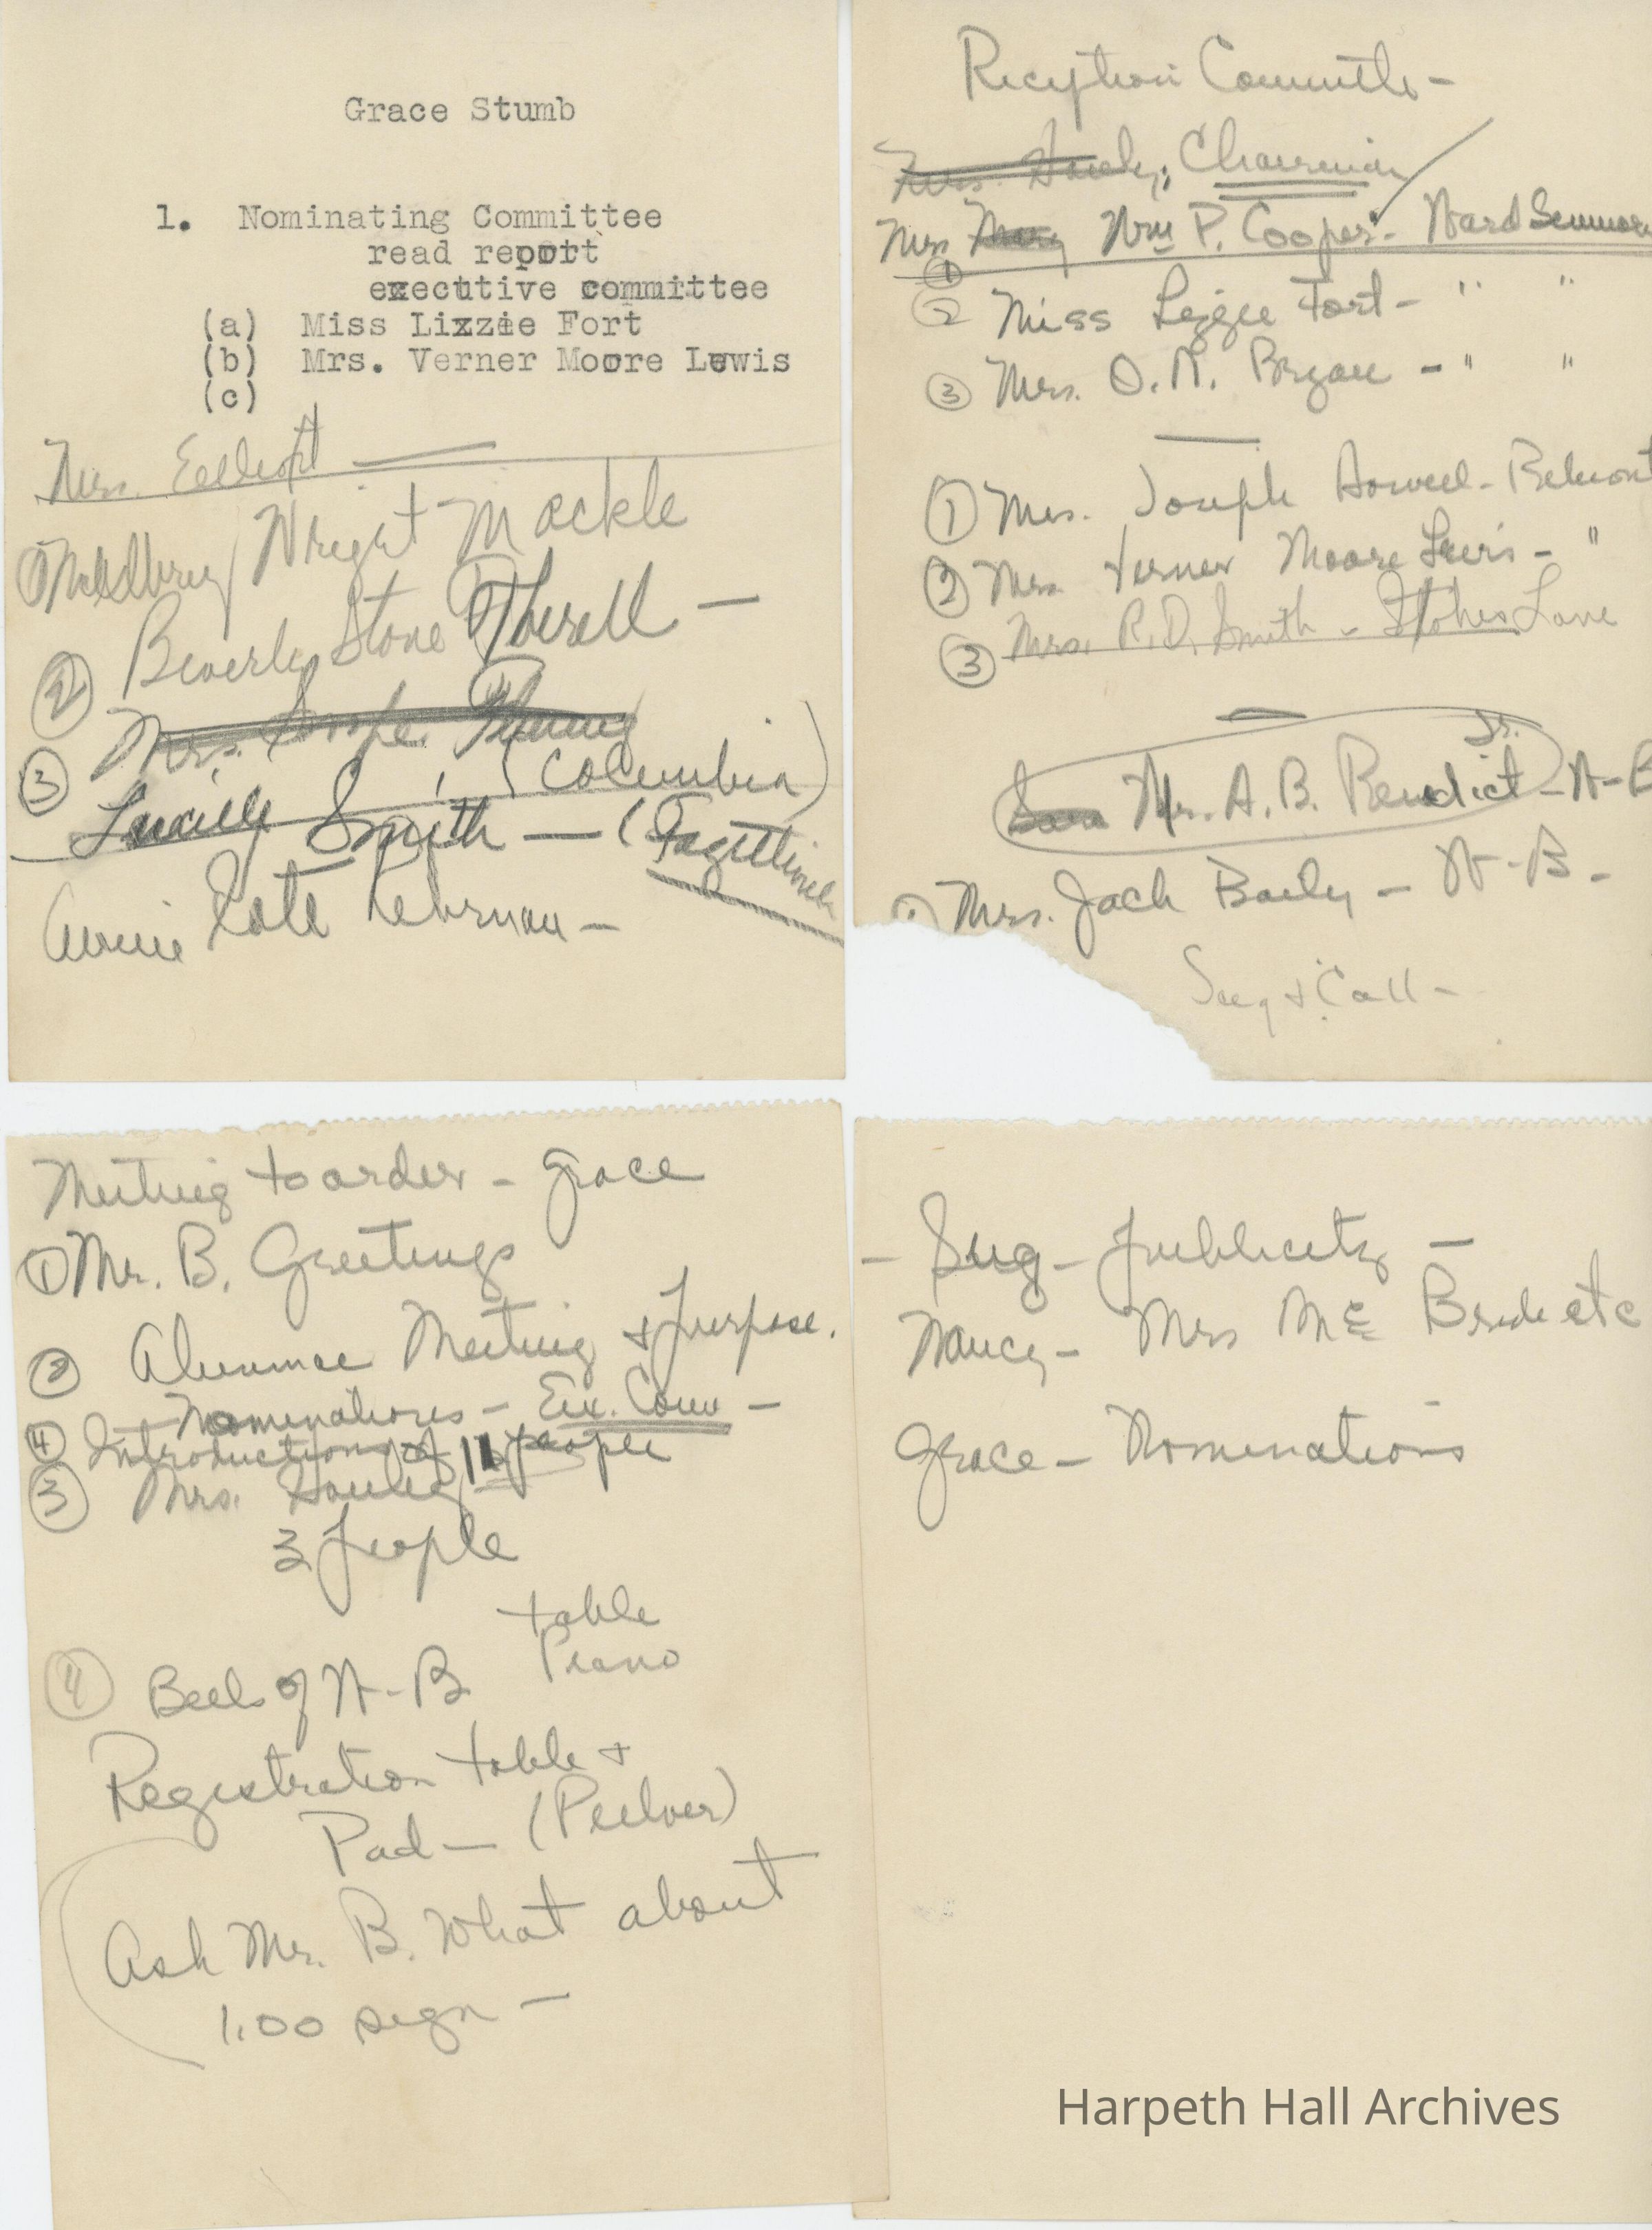 Grace Stumb
1. Nominating Committee
read report
executive committee
(a) Miss Lizzie Fort
(b) Mrs. Verner Moore Lewis
(c)
Mrs. Elliott —
① Wright Mackle
② Beverly Stone Therell —
Mrs.
③ (Columbia)
Lucille Smith — (
Annie Kate Rebman —
Reception Committe -
Mrs. Chairman
Mrs Wm P. Cooper - Ward Seminary
①
② Miss Lizzie Fort - " "
③ Mrs. O. N. Bryan - " "
① Mrs. Joseph Howell - Belmont
② Mrs Verner Moore Lewis - "
③ Mrs. R. D. Smith - Stokes Lane
Jr.
Mr. A. B. Benedict - W-B
① Mrs. Jack Baily - W-B -
Sug & Call -
Meeting to order - Grace
① Mr. B. Greetings
② Alumnae Meeting & purpose.
Nominations - Ex. Com -
④ Introduction of 11 people
③ Mrs.
3 people
table
Piano
④ Bells of W-B
Registration table &
Pad —
Ask Mr. B. What about
1.00 sign —
- Sug - publicity -
Nancy - Mrs Mc Bride etc
Grace - Nominations
Harpeth Hall Archives